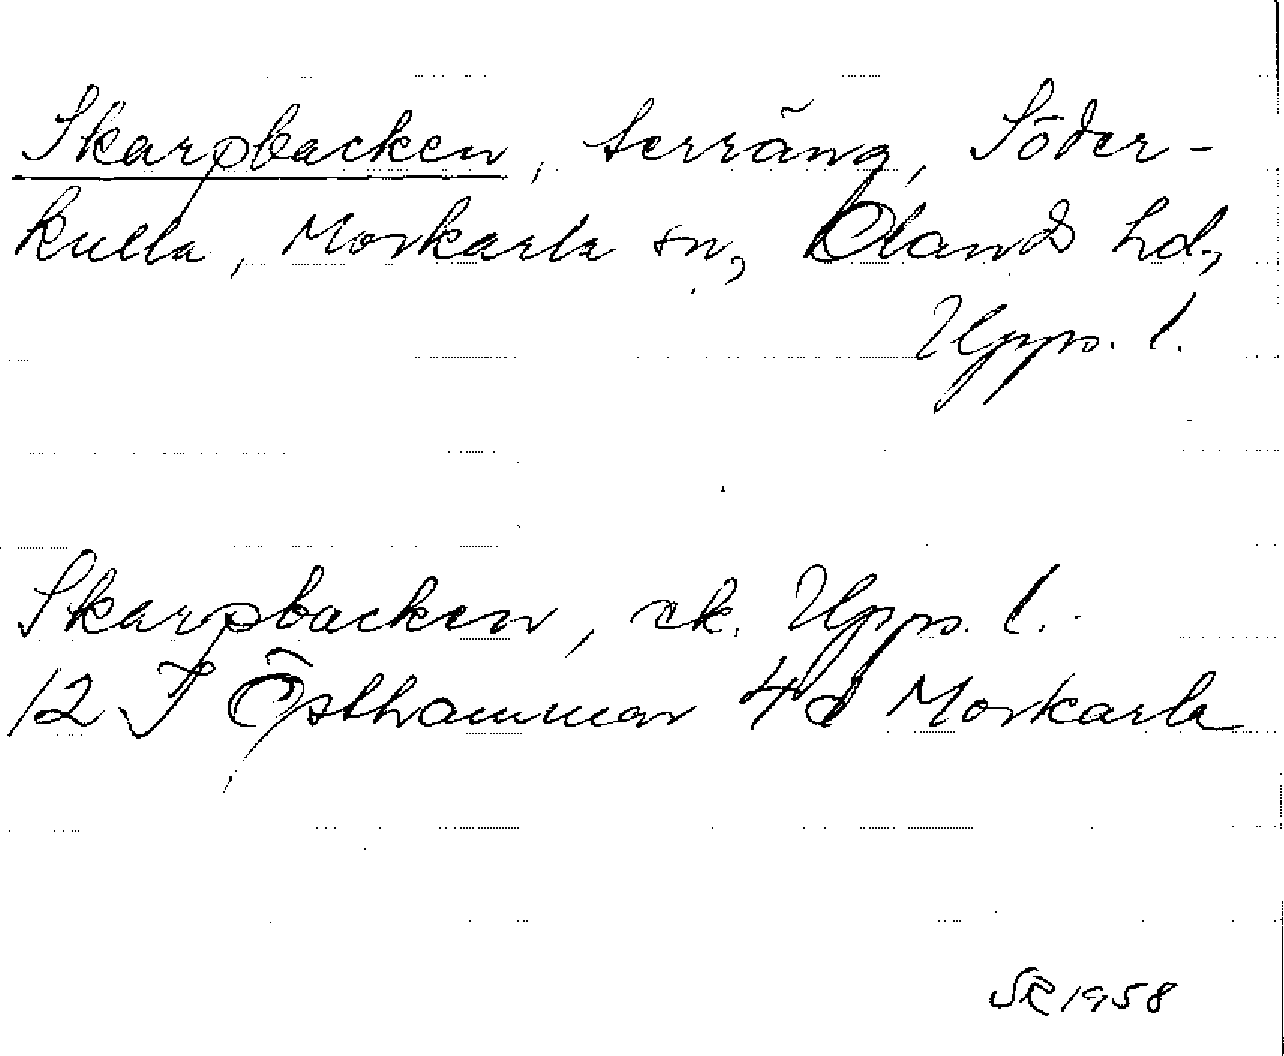 Skarpbacken, terräng, Söder-
kulla, Morkarla sn, Olands hd,
Upps. l.
Skarpbacken, ek. Upps. l.
12 I Östhammar 4d Morkarla
SR 1958